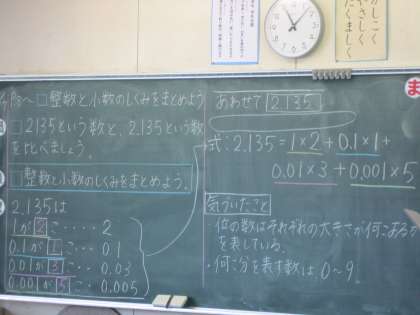 かしこく
やさしく
たくましく
P8〜 □整数と小数のしくみをまとめよう
□2135という数と、2.135という数
を比べましょう。
□整数と小数のしくみをまとめよう。
2.135は
1が2こ・・・・2
0.1が1こ・・・0.1
0.01が3こ・・・0.03
0.001が5こ・・・0.005
あわせて 2.135
式:2.135=1×2+0.1×1+
0.01×3+0.001×5
気づいたこと
・位の数はそれぞれの大きさが何こあるか
を表している。
・何こ分を表す数は、0〜9。
ま